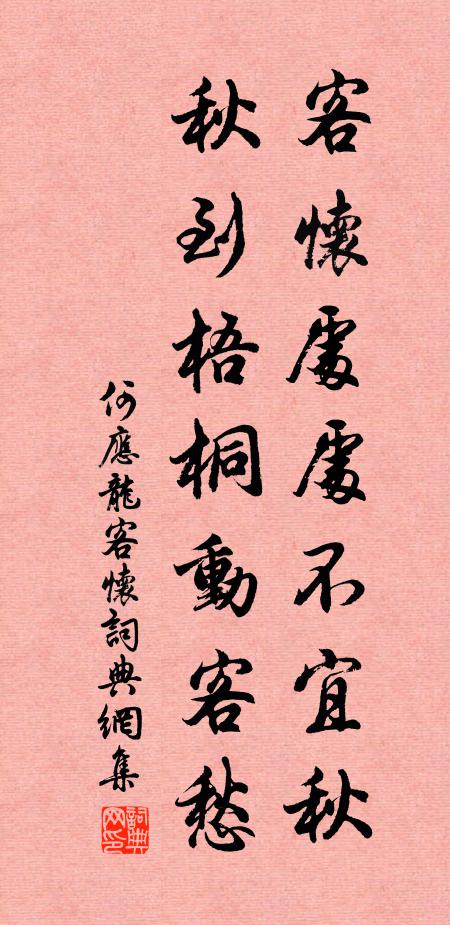 客懷處處不宜秋
秋到梧桐動客愁
何應龍客懷詞典網集
詞典网印